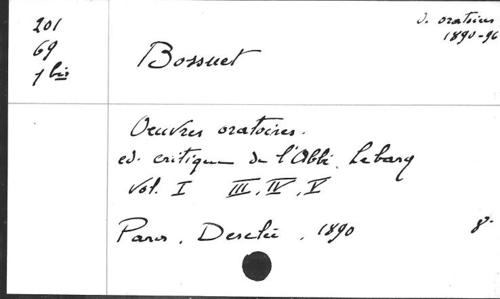 201
69
1 bis
O. oratoires
1890-96
Bossuet
Oeuvres oratoires.
ed. critique de l'Abbé Lebarq
Vol. I III, IV, V
Paris, Desclée, 1890 8°